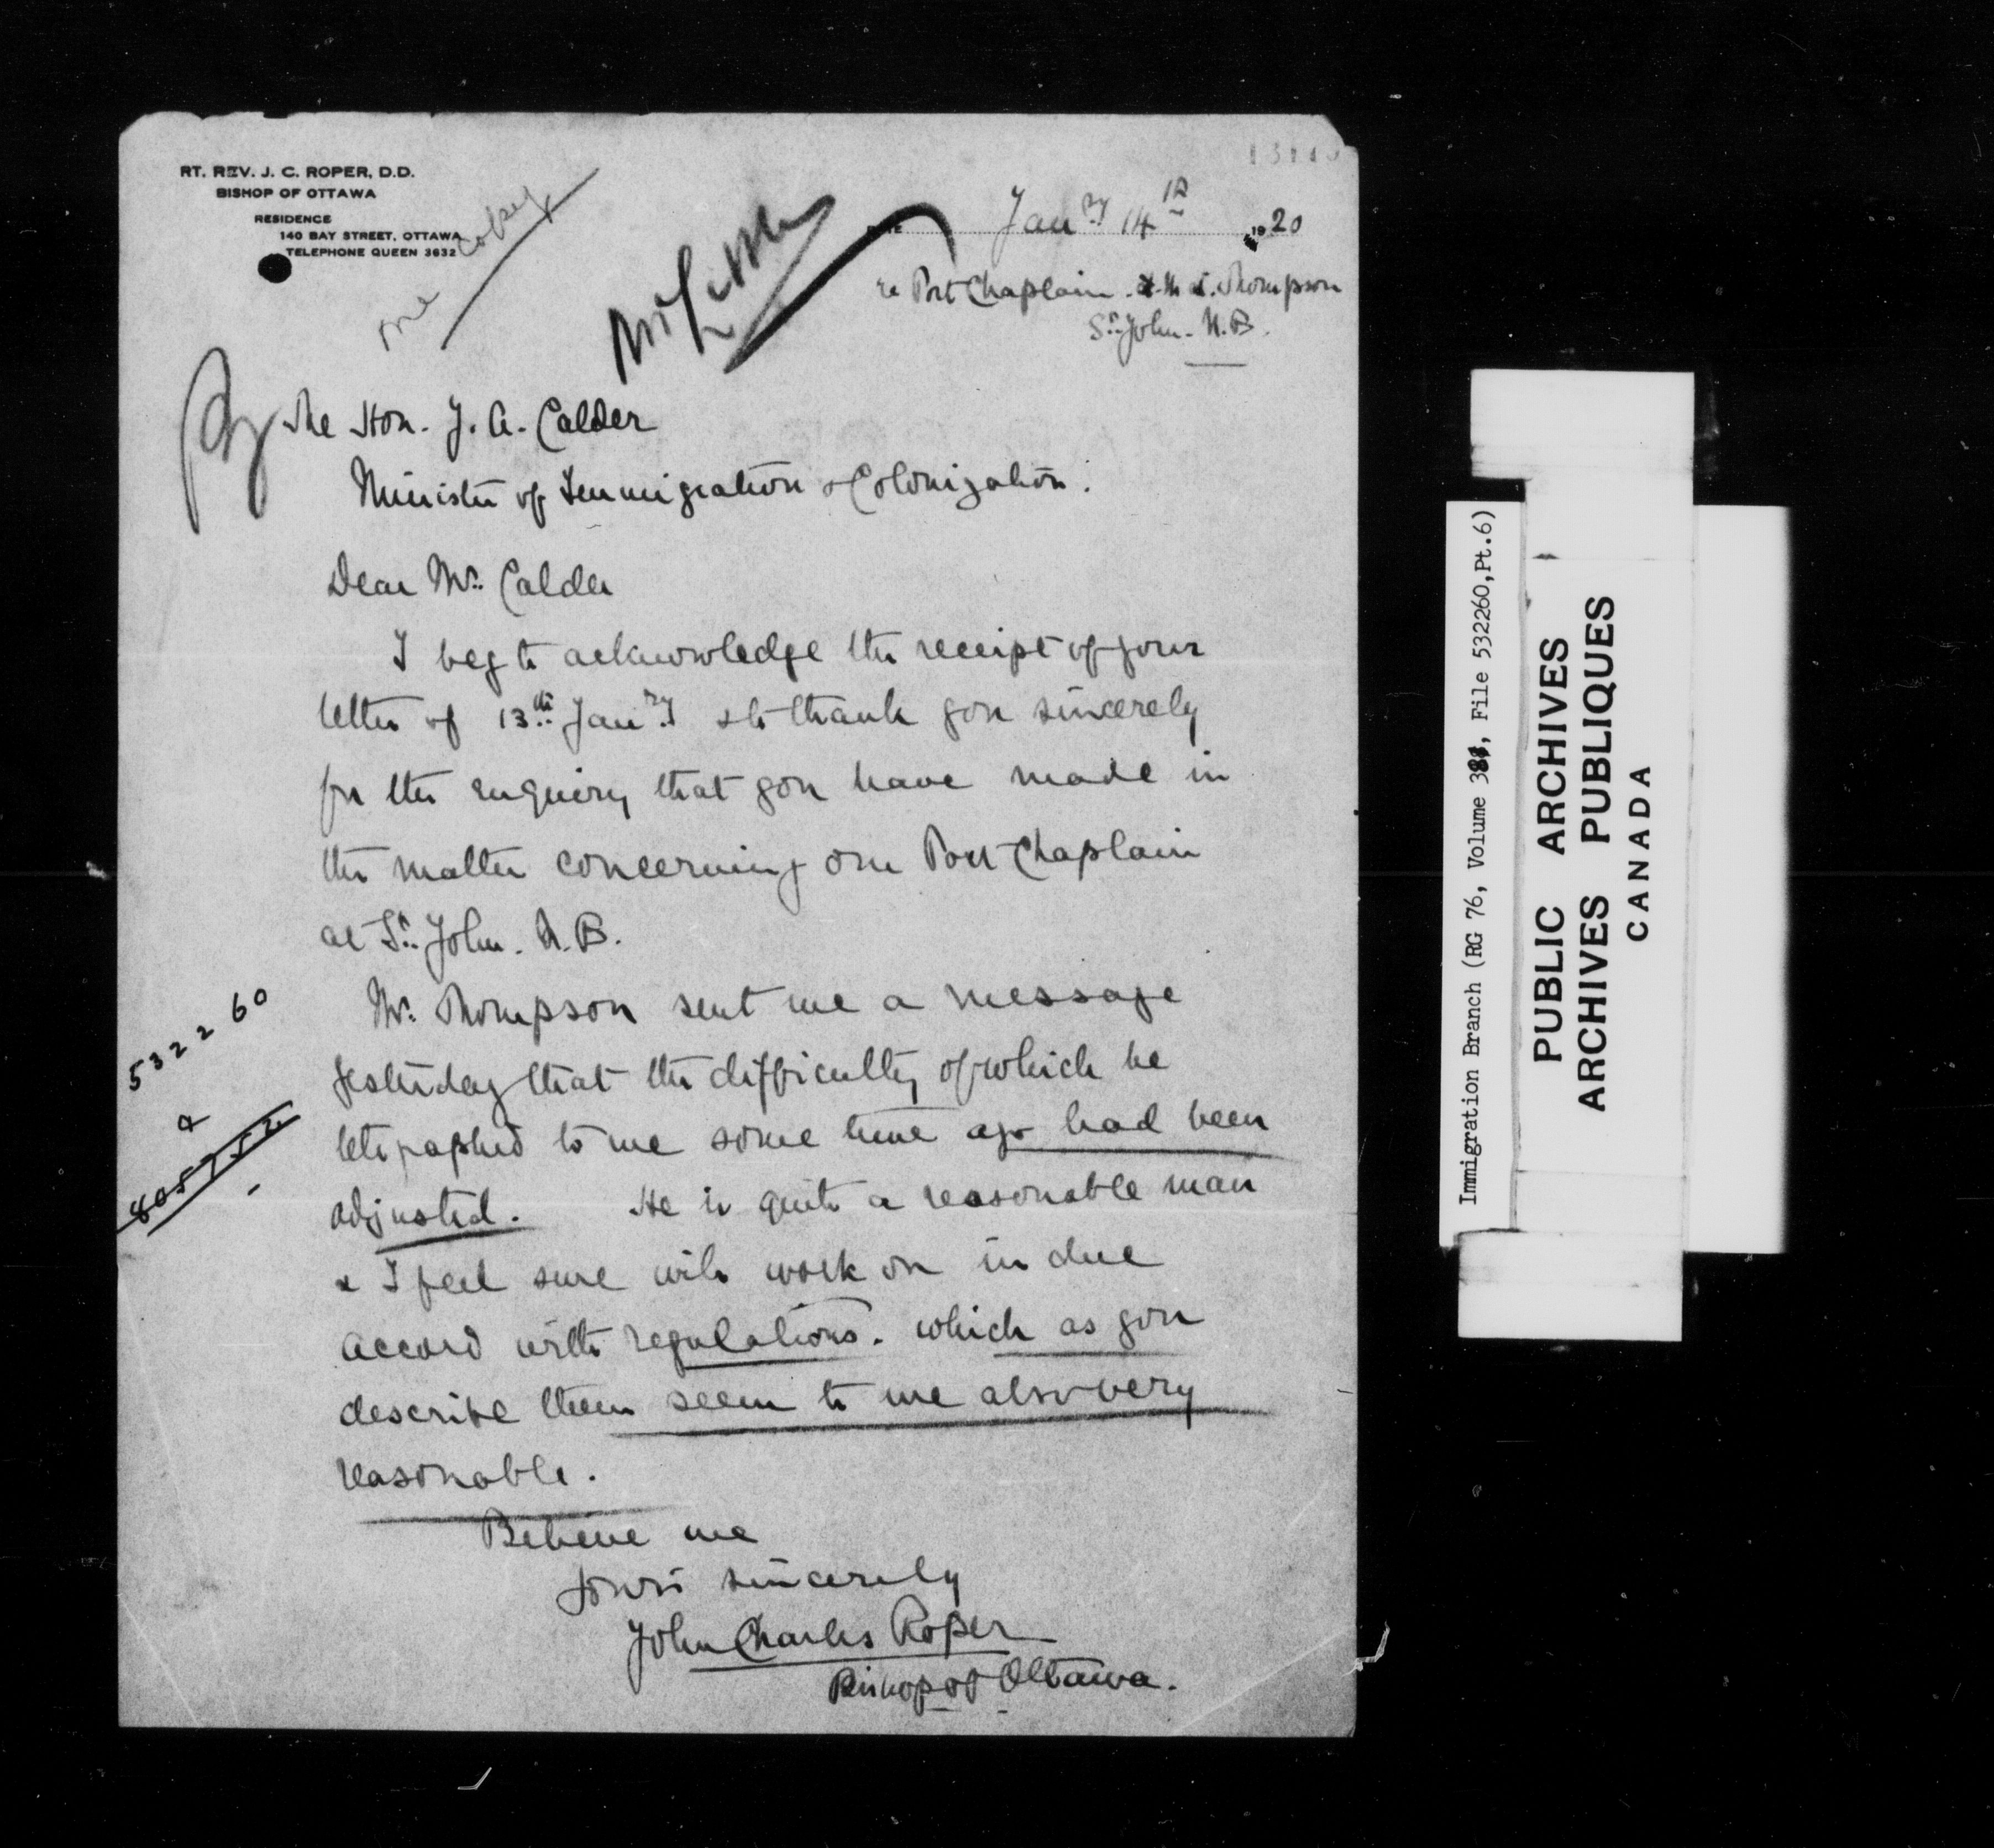 RT. REV. J. C. ROPER, D.D.
BISHOP OF OTTAWA
RESIDENCE
140 BAY STREET, OTTAWA
TELEPHONE QUEEN 3632
one copy
DATE Janry 14th 1920
re Port Chaplain. Thompson
St. John. N.B.
The Hon. J. A. Calder
Minister of Immigration & Colonization.
Dear Mr. Calder
I beg to acknowledge the receipt of your
letter of 13th Janry & to thank you sincerely
for the enquiry that you have made in
the matter concerning our Port Chaplain
at St. John. N.B.
Mr. Thompson sent me a message
yesterday that the difficulty of which he
telegraphed to me some time ago had been
adjusted. He is quite a reasonable man
& I feel sure will work on in due
accord with regulations. which as you
describe them seem to me also very
reasonable.
Believe me
Yours sincerely
John Charles Roper
Bishop of Ottawa.
532260
&
805752
Immigration Branch (RG 76, Volume File 532260,Pt.6)
PUBLIC ARCHIVES
ARCHIVES PUBLIQUES
CANADA